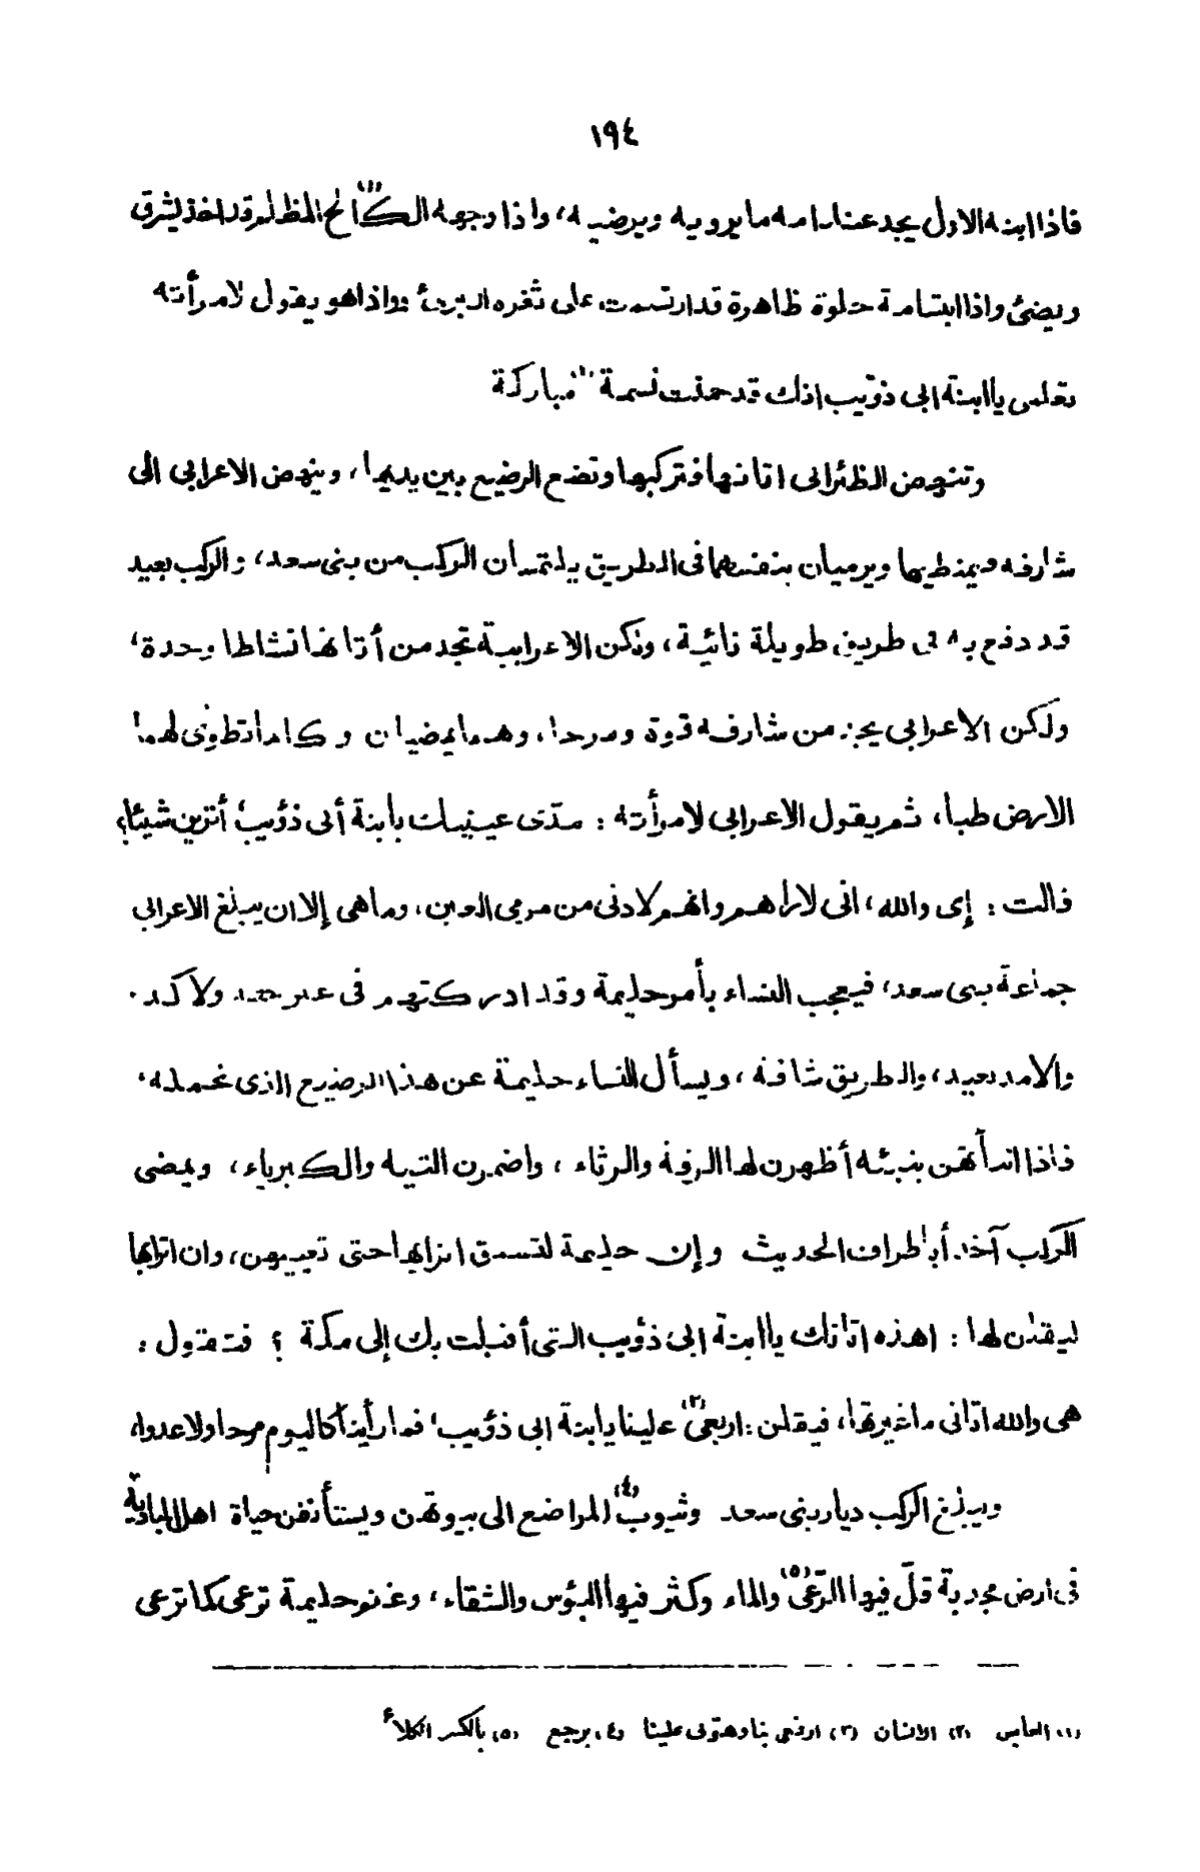 ١٩٤
فاذا ابنه الاول يجد عند امه ما يرويه ويرضيه، واذا وجهه الكالح(١) المظلم قد اخذ يشرق
ويضئ واذا ابتسامة حلوة ظاهرة قد ارتسمت على ثغره البرئ واذا هو يقول لامرأته
تعلمى يا ابنة ابى ذؤيب انك قد حملت نسمة(٢) مباركة
وتنهض الظئر الى اتانها فتركبها وتضع الرضيع بين يديها، وينهض الاعرابى الى
شارفه فيمتطيها ويرميان بنفسهما فى الطريق يلتمسان الركب من بنى سعد، والركب بعيد
قد دفع به فى طريق طويلة نائية، ولكن الاعرابية تجد من أتانها نشاطا وحدة،
ولكن الاعرابى يجد من شارفه قوة ومرحا، وهما يمضيان وكانما تطوى لهما
الارض طيا، ثم يقول الاعرابى لامرأته: مدّى عينيك يا بنة أبى ذؤيب؛ أترين شيئا؟
قالت: إى والله، انى لاراهم وانهم لادنى من مرمى العين، وما هى إلا ان يبلغ الاعرابى
جماعة بنى سعد، فيعجب النساء بأمر حليمة وقد ادركتهم فى غير جهد ولا كد.
والامد بعيد، والطريق شاقة، ويسأل النساء حليمة عن هذا الرضيع الذى تحمله،
فاذا انبأتهن بنبئه أظهرن لها الرقة والرثاء، واضمرن التيه والكبرياء، ويمضى
الركب آخذا بأطراف الحديث وإن حليمة لتسبق اترابها حتى تعييهن، وان اترابها
ليقلن لها: اهذه اتانك يا ابنة ابى ذؤيب التى أقبلت بك إلى مكة؟ فتقول:
هى والله اتانى ما غيرتها، فيقلن: اربعى(٣) علينا يا بنة ابى ذؤيب، فما رأينا كاليوم مرحا ولا عدوا،
ويبلغ الركب ديار بنى سعد وثيوب(٤) المراضع الى بيوتهن ويستأنفن حياة اهل البادية
فى ارض مجدبة قلّ فيها الرّعى(٥) والماء وكثر فيها البؤس والشقاء، وغنم حليمة ترعى كما ترعى
(١) العابس (٢) الانسان (٣) ارفعي بنا وهوّنى علينا (٤) يرجع (٥) بالكسر الكلأ